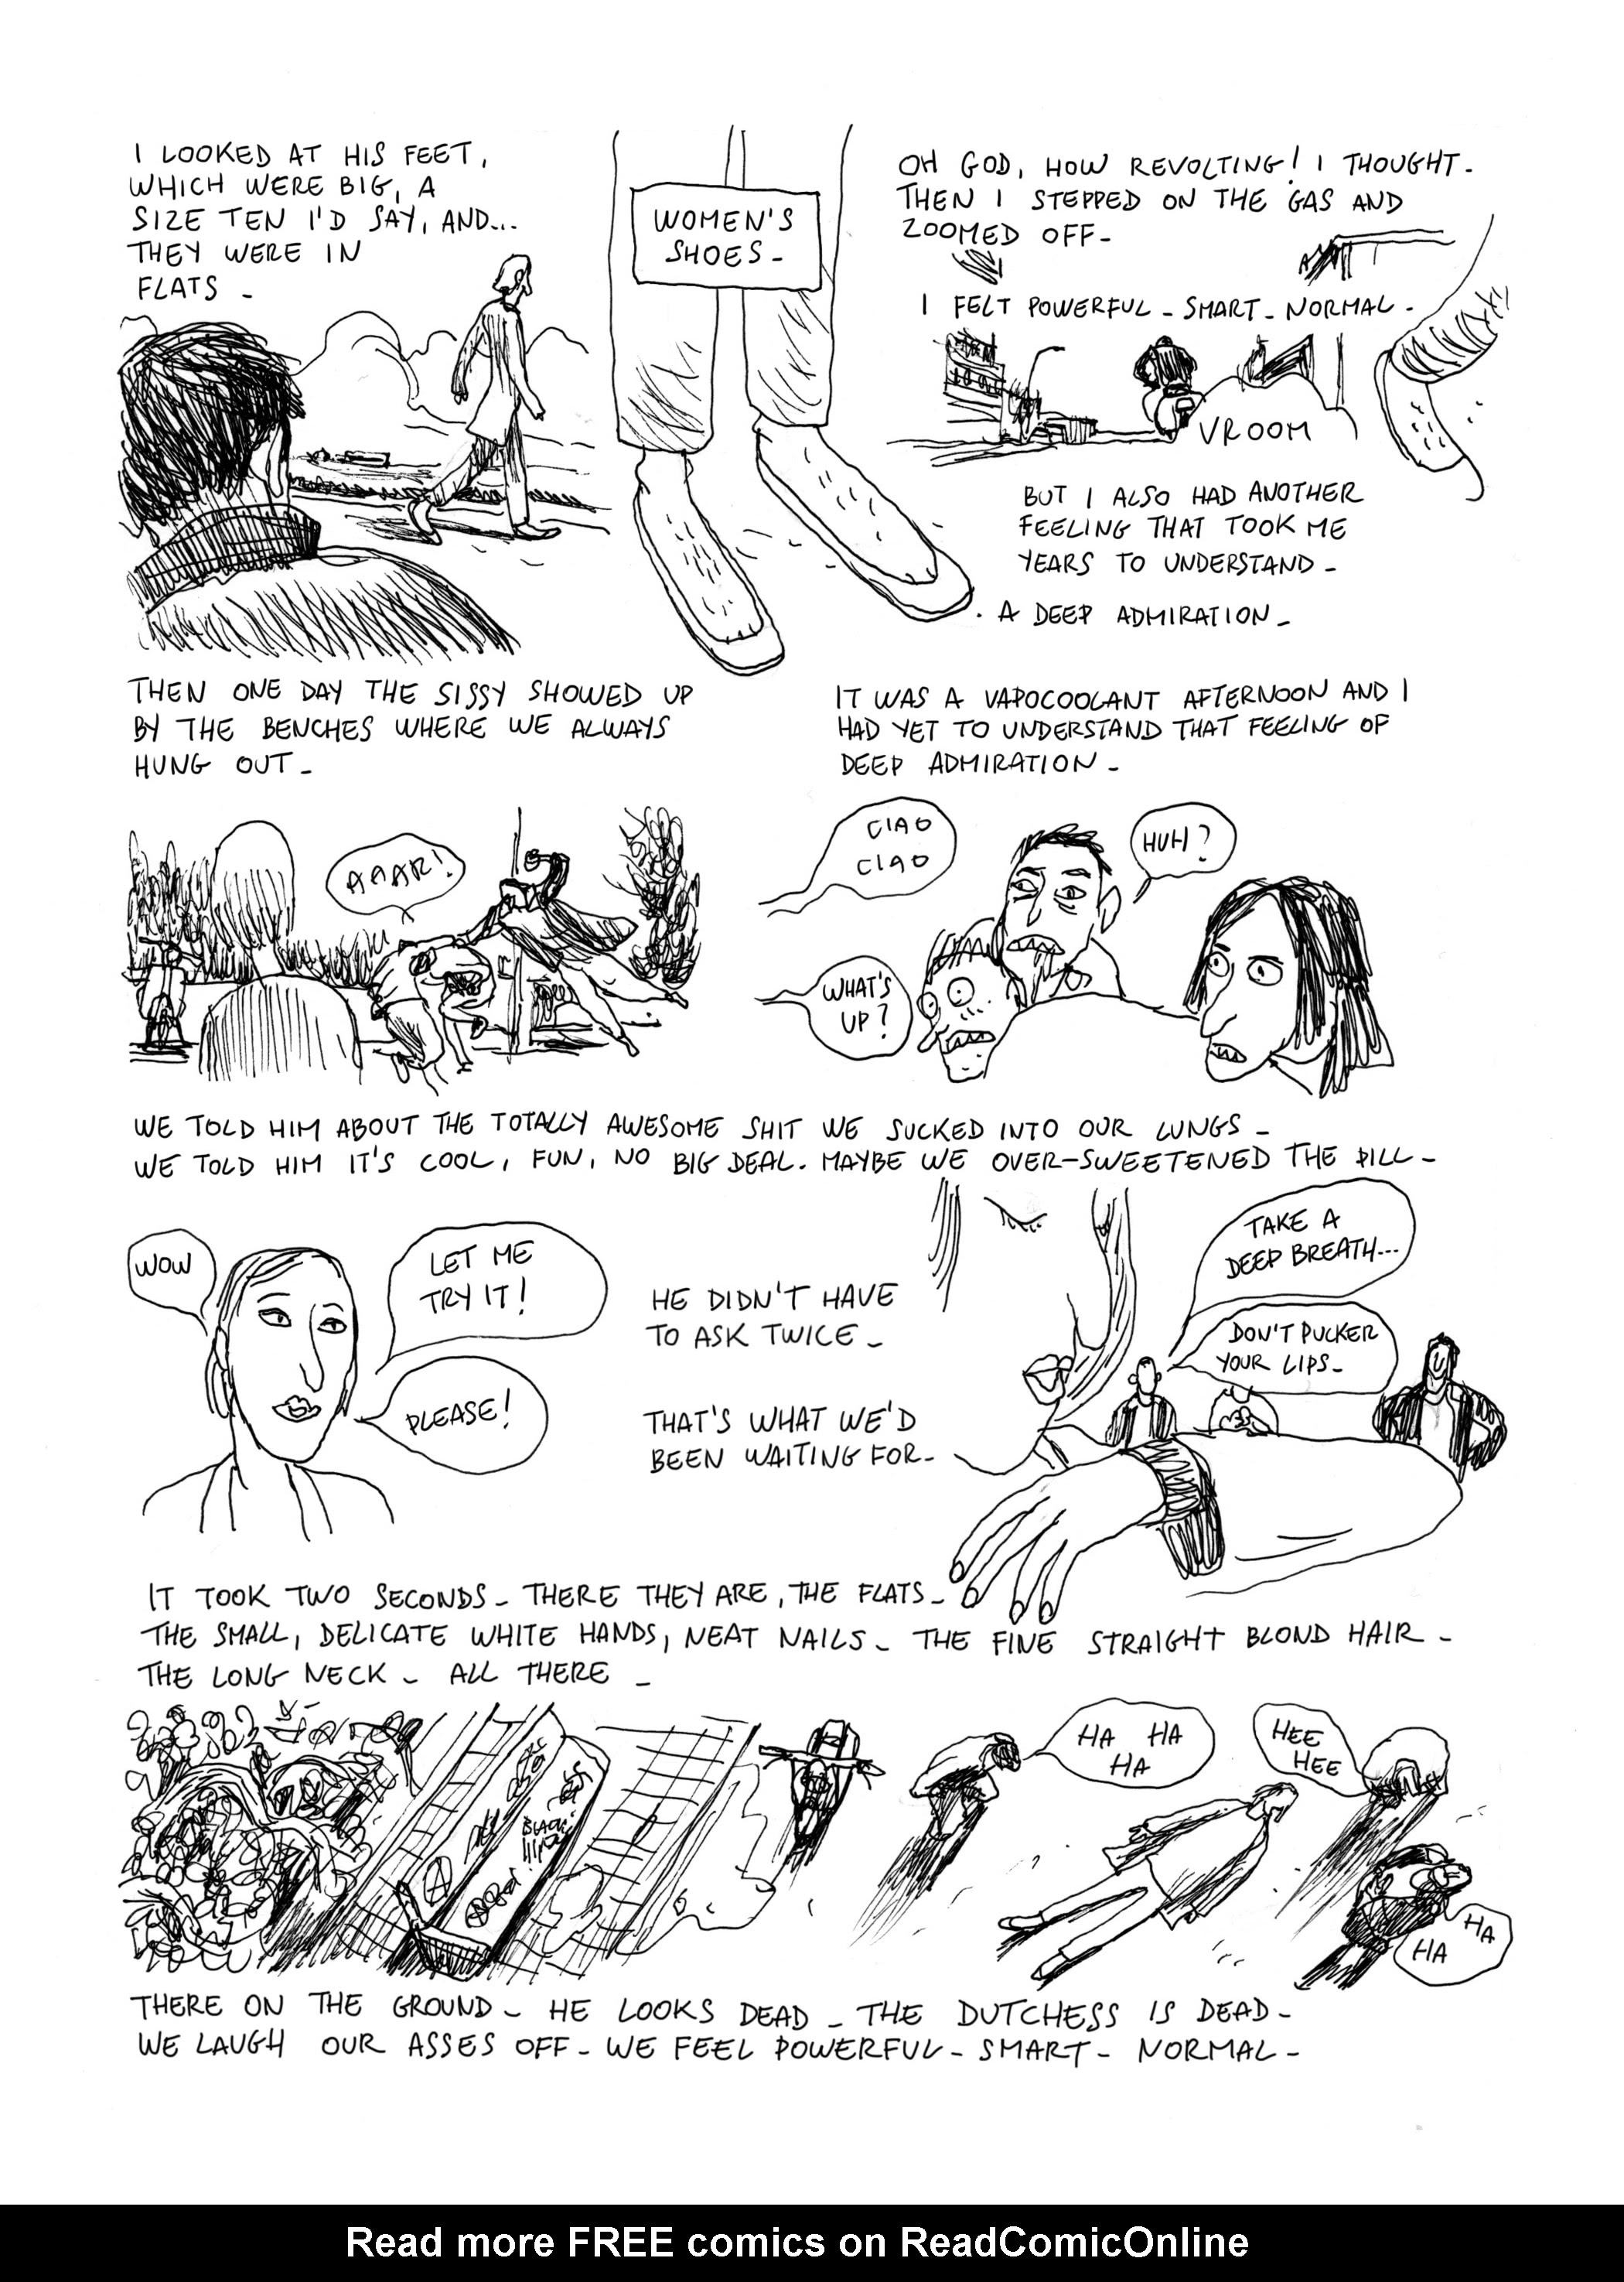 I LOOKED AT HIS FEET,
WHICH WERE BIG, A
SIZE TEN I'D SAY, AND...
THEY WERE IN
FLATS -
WOMEN'S
SHOES -
OH GOD, HOW REVOLTING! I THOUGHT -
THEN I STEPPED ON THE GAS AND
ZOOMED OFF -
I FELT POWERFUL - SMART - NORMAL -
VROOM
BUT I ALSO HAD ANOTHER
FEELING THAT TOOK ME
YEARS TO UNDERSTAND -
A DEEP ADMIRATION -
THEN ONE DAY THE SISSY SHOWED UP
BY THE BENCHES WHERE WE ALWAYS
HUNG OUT -
AAAR!
IT WAS A VAPOCOOLANT AFTERNOON AND I
HAD YET TO UNDERSTAND THAT FEELING OF
DEEP ADMIRATION -
CIAO
CIAO
HUH?
WHAT'S
UP?
WE TOLD HIM ABOUT THE TOTALLY AWESOME SHIT WE SUCKED INTO OUR LUNGS -
WE TOLD HIM IT'S COOL, FUN, NO BIG DEAL. MAYBE WE OVER-SWEETENED THE PILL -
WOW
LET ME
TRY IT!
PLEASE!
HE DIDN'T HAVE
TO ASK TWICE -
THAT'S WHAT WE'D
BEEN WAITING FOR -
TAKE A
DEEP BREATH...
DON'T PUCKER
YOUR LIPS -
IT TOOK TWO SECONDS - THERE THEY ARE, THE FLATS -
THE SMALL, DELICATE WHITE HANDS, NEAT NAILS - THE FINE STRAIGHT BLOND HAIR -
THE LONG NECK - ALL THERE -
BLACK
HA HA
HA
HEE
HEE
HA
HA
THERE ON THE GROUND - HE LOOKS DEAD - THE DUTCHESS IS DEAD -
WE LAUGH OUR ASSES OFF - WE FEEL POWERFUL - SMART - NORMAL -
Read more FREE comics on ReadComicOnline